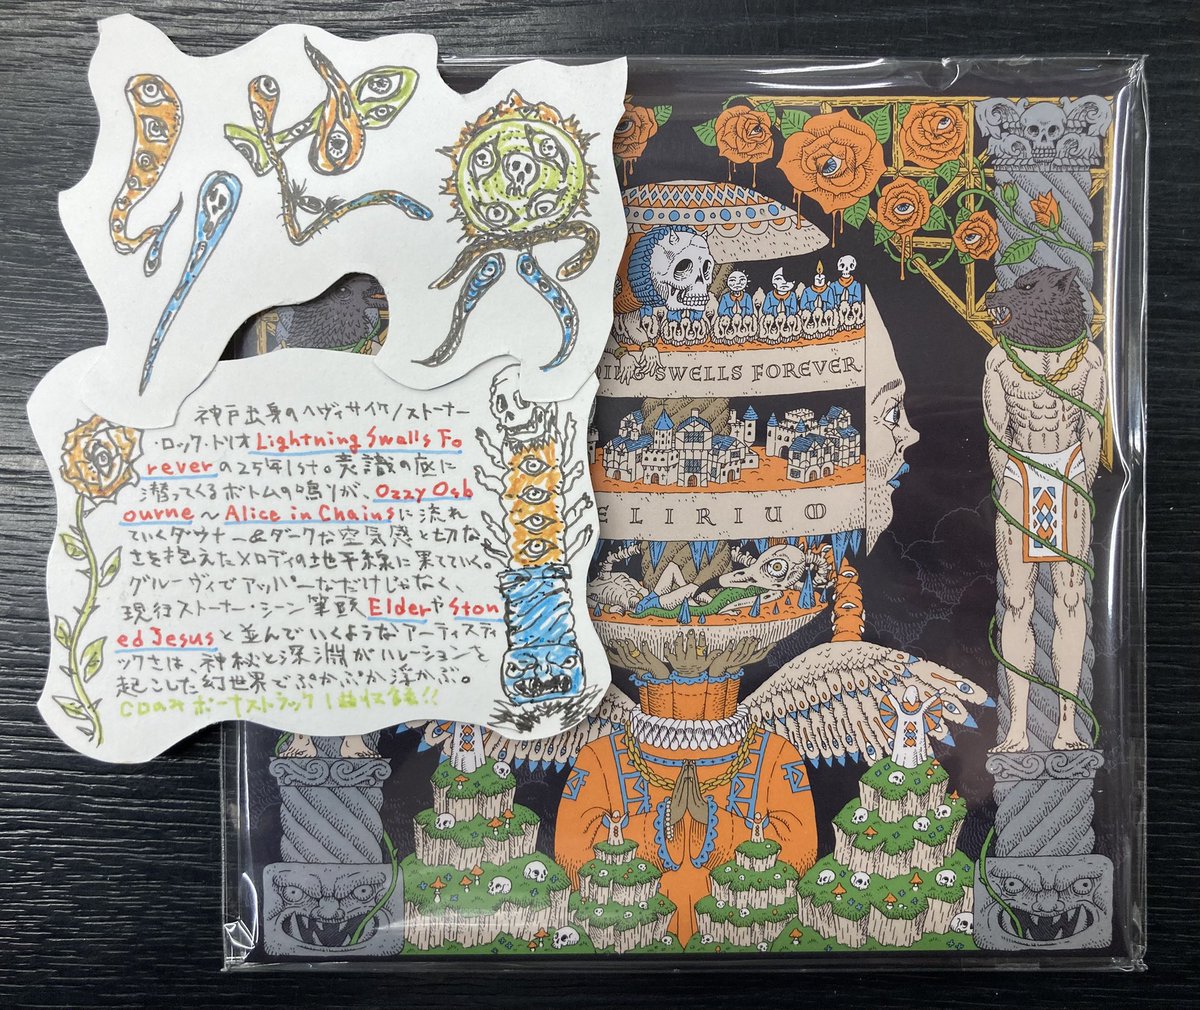 神戸出身のヘヴィサイケ/ストーナー
・ロック・トリオLightning Swells Fo
reverの25年1st。意識の底に
潜ってくるボトムの鳴りが、Ozzy Osb
ourne〜Alice in Chainsに流れ
ていくダウナー&ダークな空気感と切な
さを抱えたメロディの地平線に果てていく。
グルーヴィでアッパーなだけじゃなく、
現行ストーナー・シーン筆頭ElderやSton
ed Jesusと並んでいくようなアーティスティ
ックさは、神秘と深淵がハレーションを
起こした幻世界でぷかぷか浮かぶ。
CDのみボーナストラック1曲収録!!
ING SWELLS FOREVER
ELIRIUM